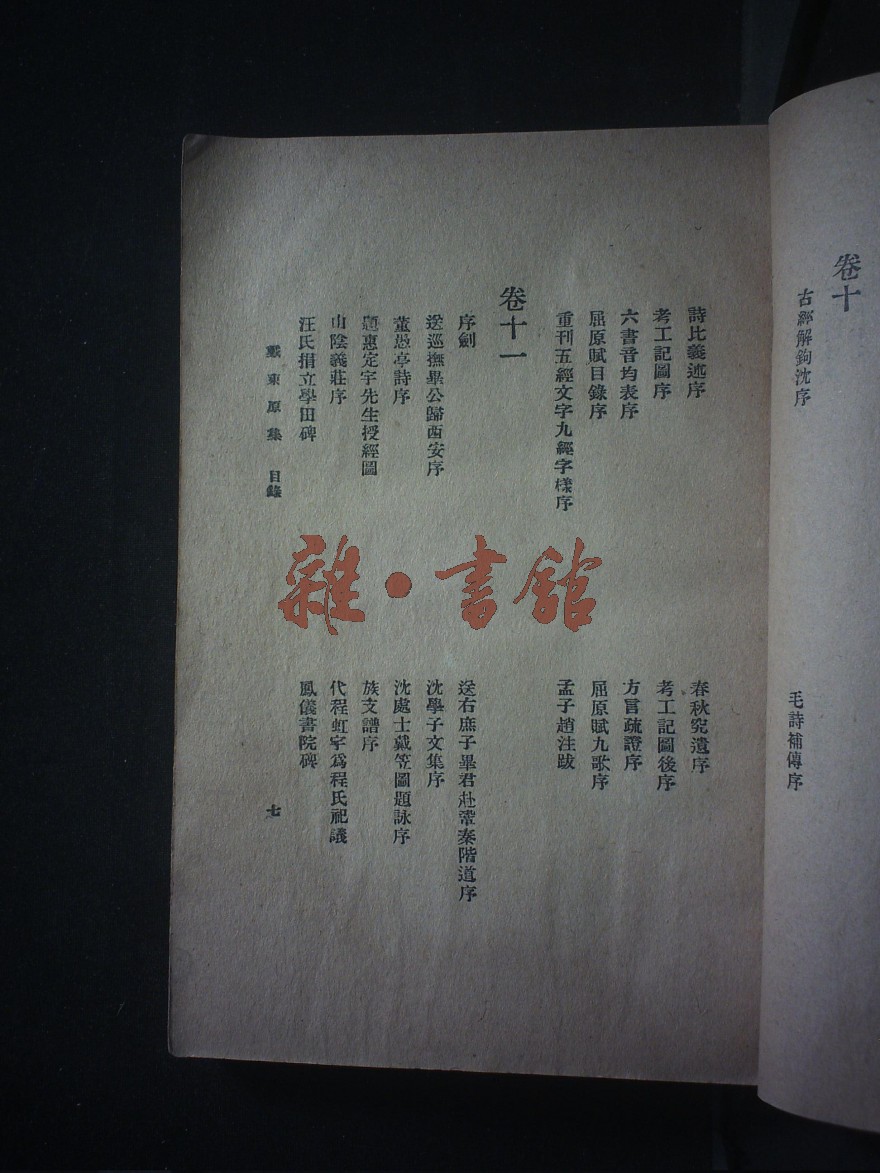 卷十
古經解鉤沈序
毛詩補傳序
詩比義述序
春秋究遺序
考工記圖序
考工記圖後序
六書音均表序
方言疏證序
屈原賦目錄序
屈原賦九歌序
重刊五經文字九經字樣序
孟子趙注跋
卷十一
序劍
送右庶子畢君赴鞏秦階道序
送巡撫畢公歸西安序
沈學子文集序
董愚亭詩序
沈處士戴笠圖題詠序
題惠定宇先生授經圖
族支譜序
山陰義莊序
代程虹宇爲程氏祀議
汪氏捐立學田碑
鳳儀書院碑
戴東原集 目錄
七
雜·書館